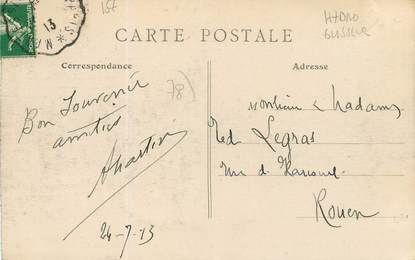 157
HYDRO
GLISSEUR
13
CARTE POSTALE
Correspondance
Adresse
78)
Bon Souvenir
amitiés
24-7-13
Monsieur & Madame
Legras
rue d'
Rouen